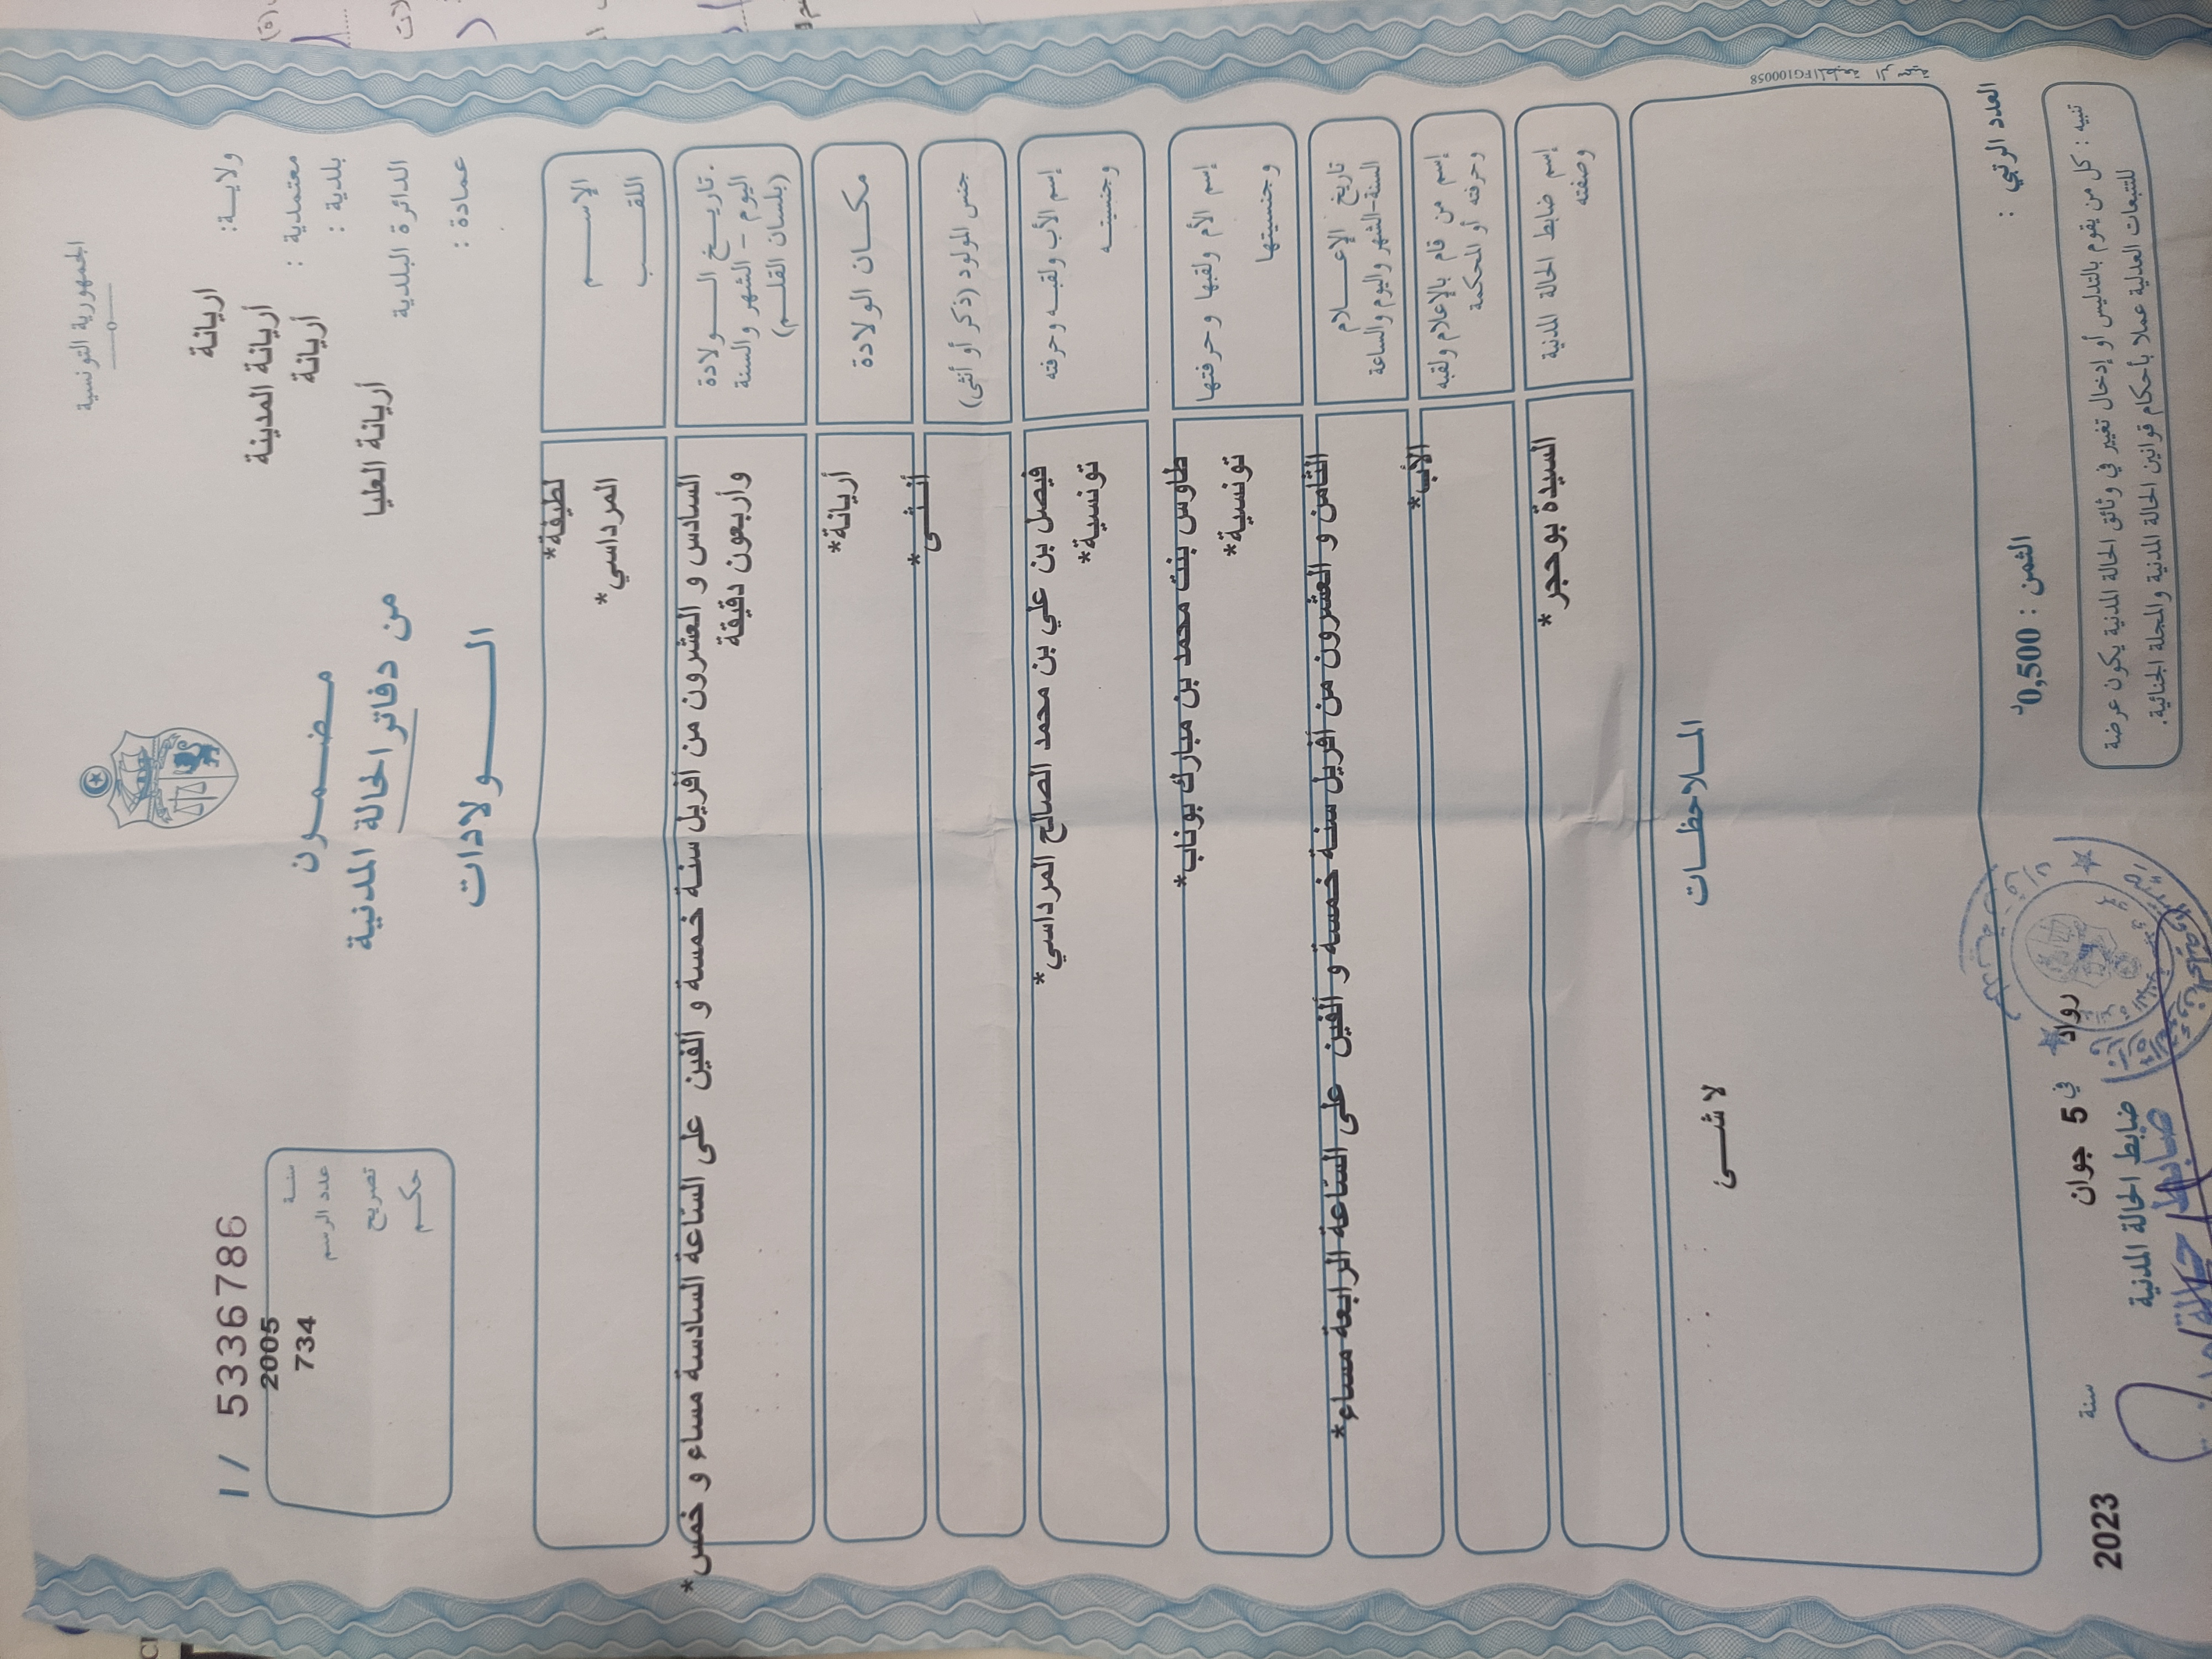 الجمهورية التونسية
ولاية: اريانة
معتمدية : أريانة المدينة
بلدية : أريانة
الدائرة البلدية أريانة العليا
عمادة :
مضمون
من دفاتر الحالة المدنية
الولادات
1/ 5336786
سنة 2005
عدد الرسم 734
تصريح
حكم
الإسم لطيفة*
اللقب المرداسي*
تاريخ الولادة السادس و العشرون من أفريل سنة خمسة و ألفين على الساعة السادسة مساء و خمس*
اليوم - الشهر والسنة وأربعون دقيقة
(بلسان القلم)
مكان الولادة أريانة*
جنس المولود (ذكر أو أنثى) أنثى*
إسم الأب ولقبه وحرفته فيصل بن علي بن محمد الصالح المرداسي*
وجنسيته تونسية*
إسم الأم ولقبها وحرفتها طاوس بنت محمد بن مبارك بوناب*
وجنسيتها تونسية*
تاريخ الإعلام الثامن و العشرون من أفريل سنة خمسة و ألفين على الساعة الرابعة مساء*
السنة-الشهر واليوم والساعة
إسم من قام بالإعلام ولقبه الأب*
وحرفته أو المحكمة
إسم ضابط الحالة المدنية السيدة بوحجر*
وصفته
الملاحظات
لا شئ
IFG100058
العدد الرتبي :
الثمن : 0,500د
تنبيه : كل من يقوم بالتدليس أو إدخال تغيير في وثائق الحالة المدنية يكون عرضة
للتتبعات العدلية عملا بأحكام قوانين الحالة المدنية والمجلة الجنائية.
رواد في 5 جوان سنة 2023
ضابط الحالة المدنية